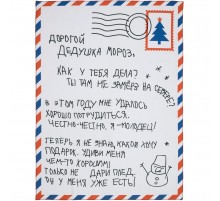 ДОРОГОЙ
ДЕДУШКА МОРОЗ,
КАК У ТЕБЯ ДЕЛА?
ТЫ ТАМ НЕ ЗАМЁРЗ НА СЕВЕРЕ?
В ЭТОМ ГОДУ МНЕ УДАЛОСЬ
ХОРОШО ПОТРУДИТЬСЯ.
ЧЕСТНО-ЧЕСТНО, Я - МОЛОДЕЦ!
ТЕПЕРЬ Я НЕ ЗНАЮ, КАКОЙ ХОЧУ
ПОДАРОК. УДИВИ МЕНЯ
ЧЕМ-ТО ХОРОШИМ!
ТОЛЬКО НЕ ДАРИ ПЛЕД,
ОН У МЕНЯ УЖЕ ЕСТЬ!